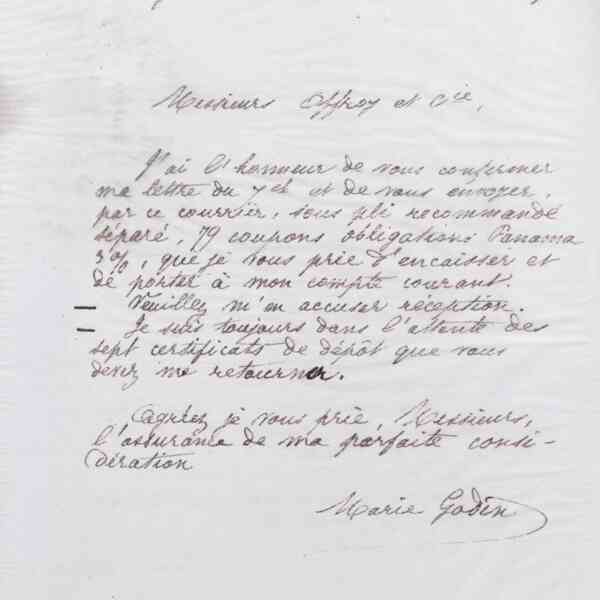 Messieurs Offroy et Cie,
J'ai l'honneur de vous confirmer
ma lettre du 7 et et de vous envoyer,
par ce courrier, sous pli recommandé
séparé, 79 coupons obligations Panama
3%, que je vous prie d'encaisser et
de porter à mon compte courant.
Veuillez m'en accuser réception.
Je suis toujours dans l'attente des
sept certificats de dépôt que vous
devez me retourner.
Agréez je vous prie, Messieurs,
l'assurance de ma parfaite consi-
dération
Marie Godin